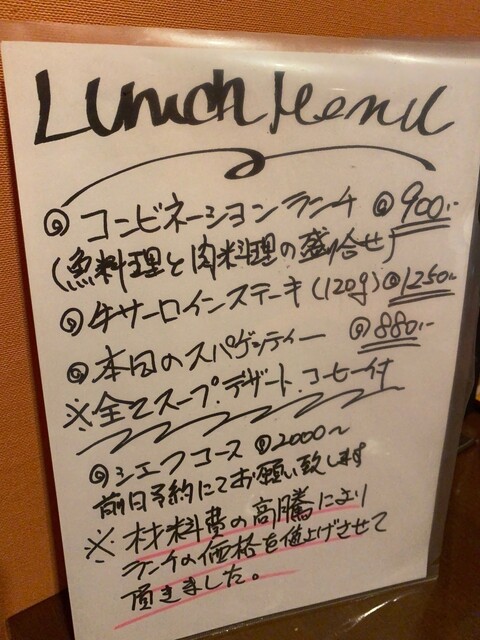 Lunch Menu
◎ コンビネーションランチ @900.-
(魚料理と肉料理の盛り合せ)
◎ 牛サーロインステーキ (120g) @1250-
◎ 本日のスパゲッティー @880.-
※全てスープ.デザート.コーヒー付
◎ シェフコース @2000〜
前日予約にてお願い致します
※ 材料費の高騰により
ランチの価格を値上げさせて
頂きました。